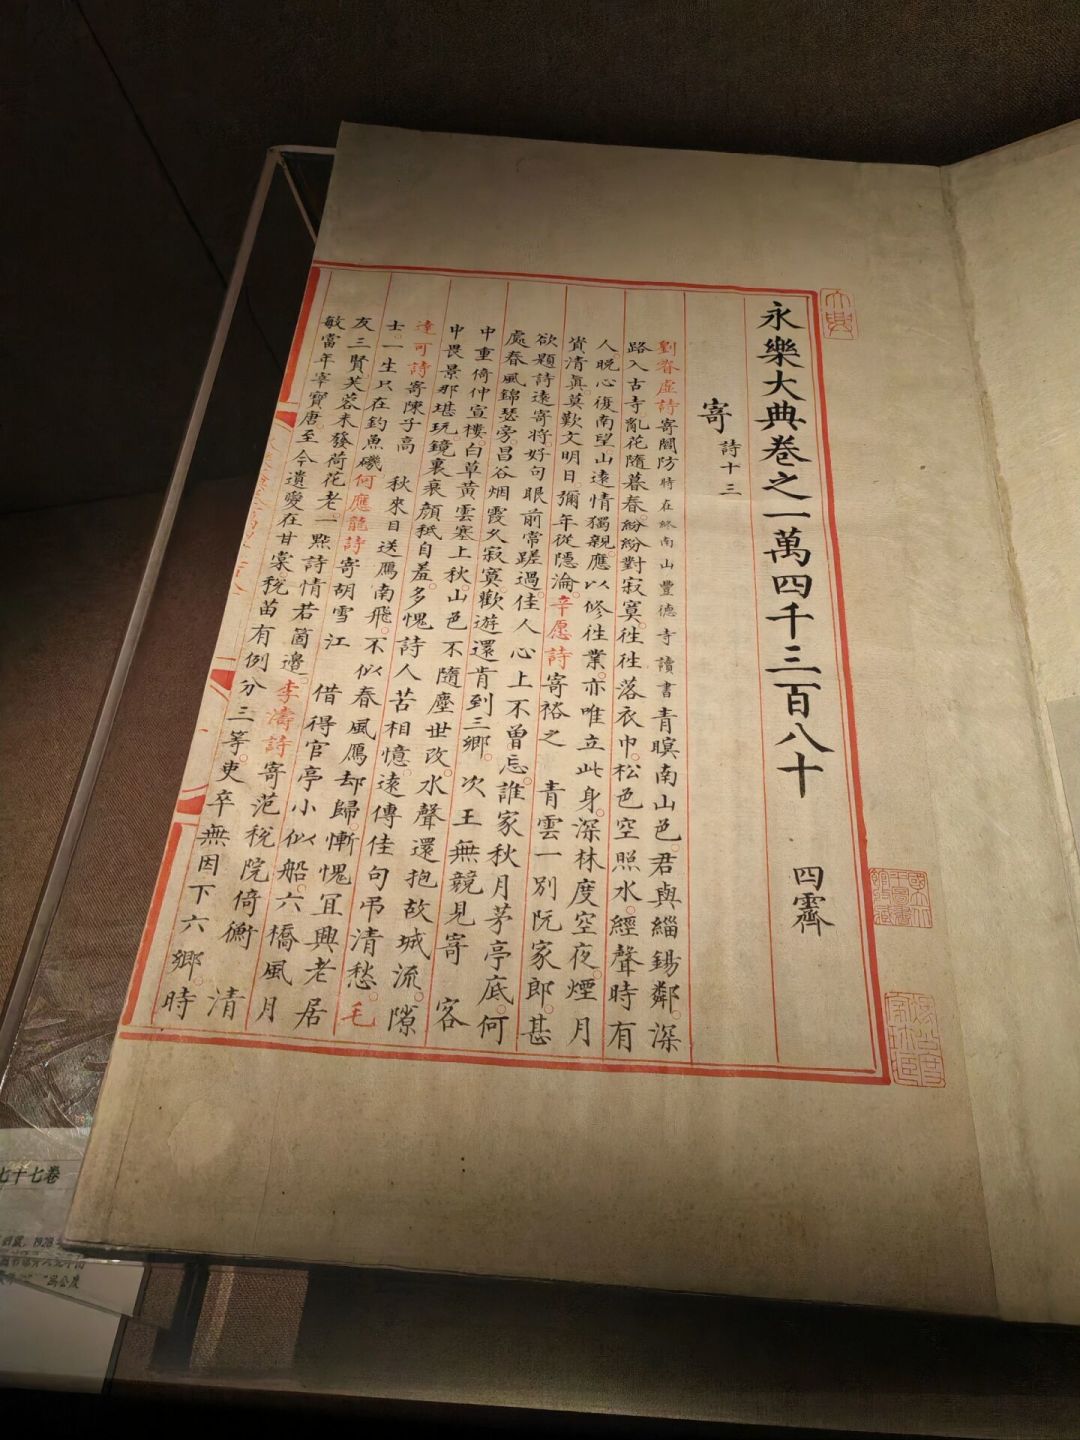 永樂大典卷之一萬四千三百八十 四霽
寄 詩十三
劉眘虛詩寄閻防時在終南山豐德寺讀書 青暝南山色。君與緇錫鄰。深
路入古寺。亂花隨暮春。紛紛對寂寞。往往落衣巾。松色空照水。經聲時有
人。晚心復南望。山遠情獨親。應以修往業。亦唯立此身。深林度空夜。煙月
賞清真。莫歎文明日。彌年從隱淪。辛愿詩寄裕之 青雲一別阮家郎。甚
欲題詩遠寄將。好句眼前常蹉過。佳人心上不曾忘。誰家秋月茅亭底。何
處春風錦瑟旁。昌谷烟霞久寂寞。歡遊還肯到三鄉。 次王無競見寄 客
中重倚仲宣樓。白草黃雲塞上秋。山色不隨塵世改。水聲還抱故城流。隙
中畏景那堪玩。鏡裏衰顏秪自羞。多愧詩人苦相憶。遠傳佳句弔清愁。毛
達可詩寄陳子高 秋來目送鴈南飛。不似春風鴈却歸。慚愧宜興老居
士。一生只在釣魚磯。何應龍詩寄胡雪江 借得官亭小似船。六橋風月
友三賢。芙蓉未發荷花老。一點詩情若箇邊。李濤詩寄范稅院倚衡 清
敏當年宰寶唐。至今遺愛在甘棠。稅苗有例分三等。吏卒無因下六鄉。時
大典
七十七卷